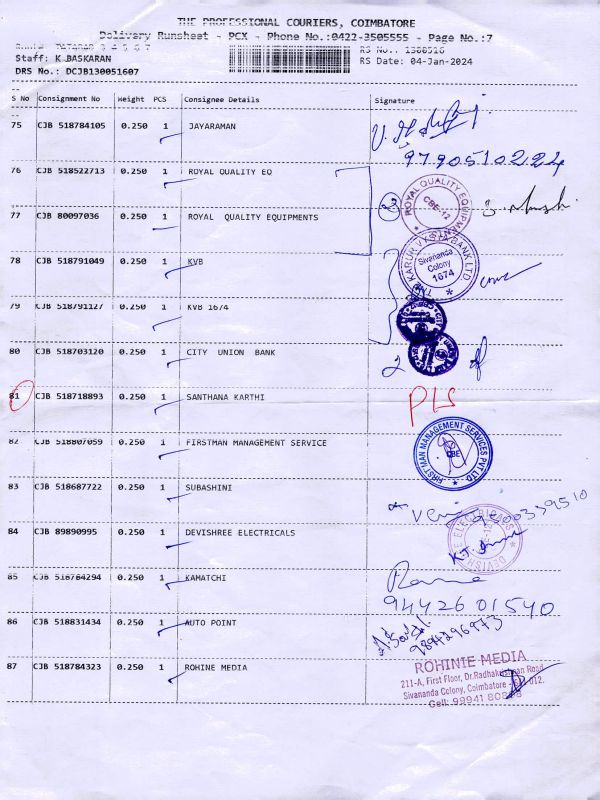 THE PROFESSIONAL COURIERS, COIMBATORE
Delivery Runsheet - PCX - Phone No.:0422-3505555 - Page No.:7
RS No.: 1388516
Staff: K BASKARAN RS Date: 04-Jan-2024
DRS No.: DCJB130051607
S No Consignment No Weight PCS Consignee Details Signature
75 CJB 518784105 0.250 1 JAYARAMAN
9790510224
76 CJB 518522713 0.250 1 ROYAL QUALITY EQ
2
ROYAL QUALITY EQUIPMENTS
CBE-12
77 CJB 80097036 0.250 1 ROYAL QUALITY EQUIPMENTS
78 CJB 518791049 0.250 1 KVB
THE KARUR VYSYA BANK LTD
Sivananda
Colony
1674
79 CJB 518791127 0.250 1 KVB 1674
80 CJB 518703120 0.250 1 CITY UNION BANK
2
81 CJB 518718893 0.250 1 SANTHANA KARTHI
PLS
82 CJB 518807059 0.250 1 FIRSTMAN MANAGEMENT SERVICE
FIRST MAN MANAGEMENT SERVICES PVT LTD
CBE
83 CJB 518687722 0.250 1 SUBASHINI
9500339510
84 CJB 89890995 0.250 1 DEVISHREE ELECTRICALS
DEVISHREE ELECTRICALS
85 CJB 518784294 0.250 1 KAMATCHI
9442601540
86 CJB 518831434 0.250 1 AUTO POINT
9894796973
87 CJB 518784323 0.250 1 ROHINE MEDIA
ROHINIE MEDIA
211-A, First Floor, Dr.Radhakrishnan Road
Sivananda Colony, Coimbatore - 641 012.
Cell: 99941